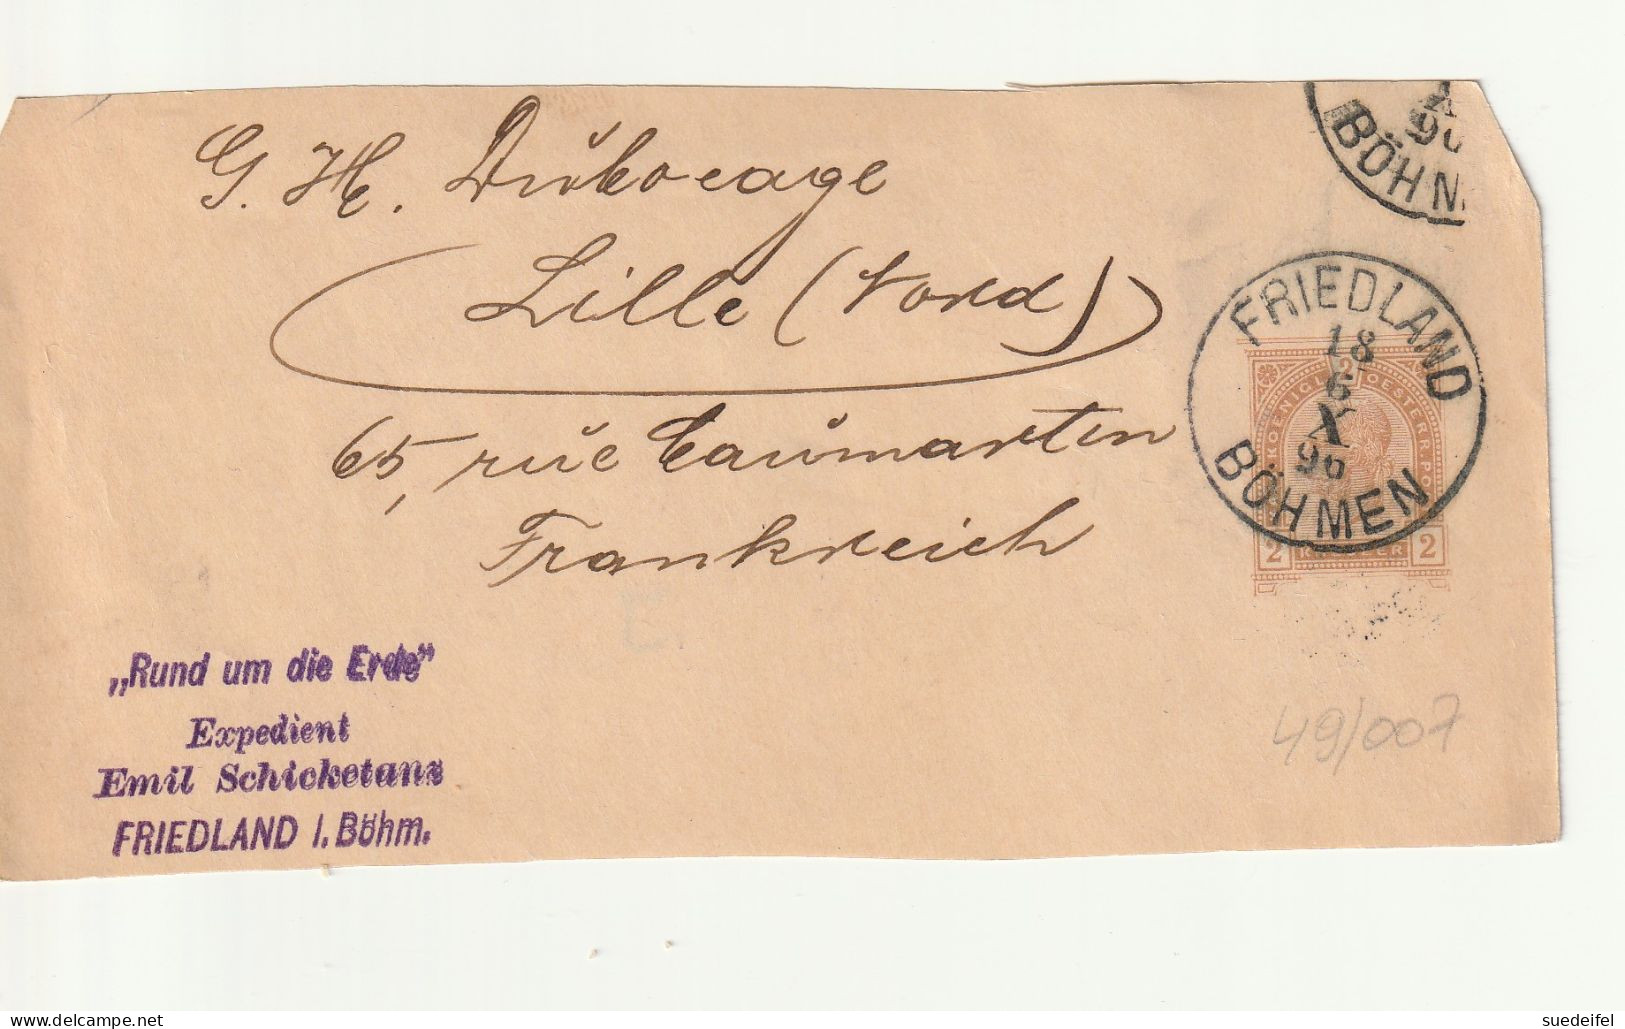 G. H. Dubocage
Lille (Nord)
65, rue Caumartin
Frankreich
BÖHM
FRIEDLAND
18
6
X
96
BÖHMEN
2
KOENIGL. OESTERR. PO
2 2
„Rund um die Erde"
Expedient
Emil Schicketanz
FRIEDLAND i. Böhm.
49/007
www.delcampe.net
suedeifel